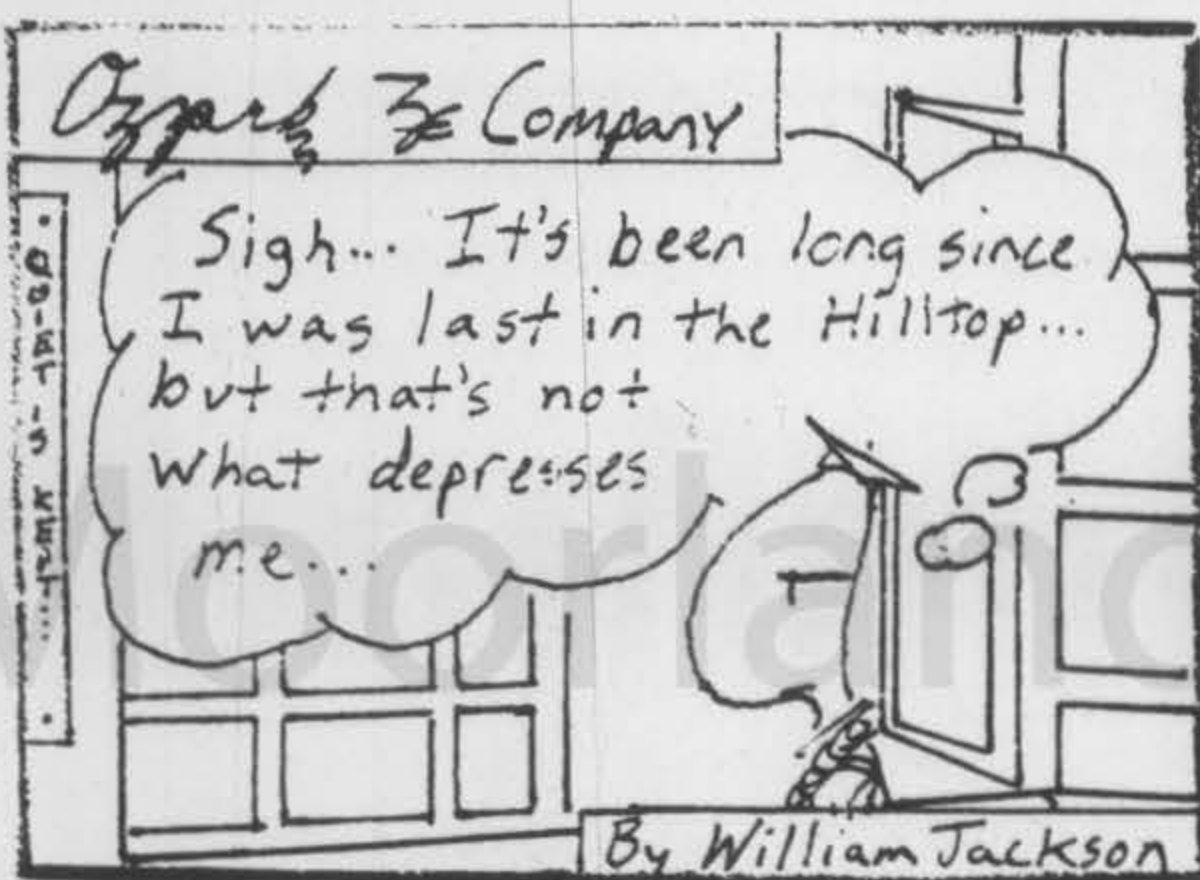 Ozzark & Company
Sigh... It's been long since
I was last in the Hilltop...
but that's not
what depresses
me...
By William Jackson
Moorland